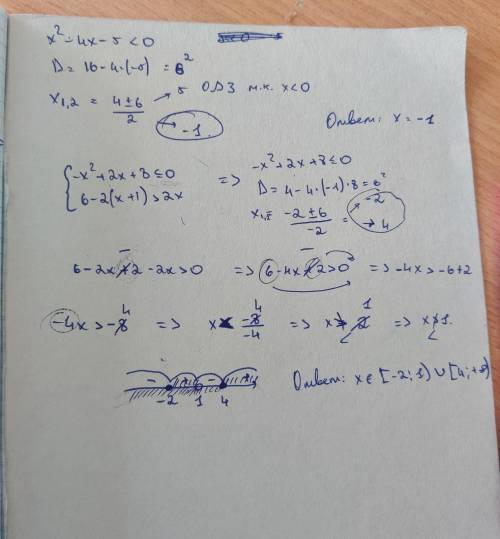 x² - 4x - 5 < 0
D = 16 - 4·(-5) = 6²
x₁,₂ = (4 ± 6)/2 → 5 ОДЗ т.к. x < 0
→ -1
Ответ: x = -1
{ -x² + 2x + 8 ≤ 0 => -x² + 2x + 8 ≤ 0
6 - 2(x + 1) > 2x
D = 4 - 4·(-1)·8 = 6²
x₁,₂ = (-2 ± 6)/-2 = → -2
→ 4
6 - 2x - 2 - 2x > 0 => 6 - 4x - 2 > 0 => -4x > -6 + 2
-4x > -4 => x < -4/-4 => x < 1 => x < 1.
-2 1 4
Ответ: x ∈ [-2; 1) ∪ [4; +∞)